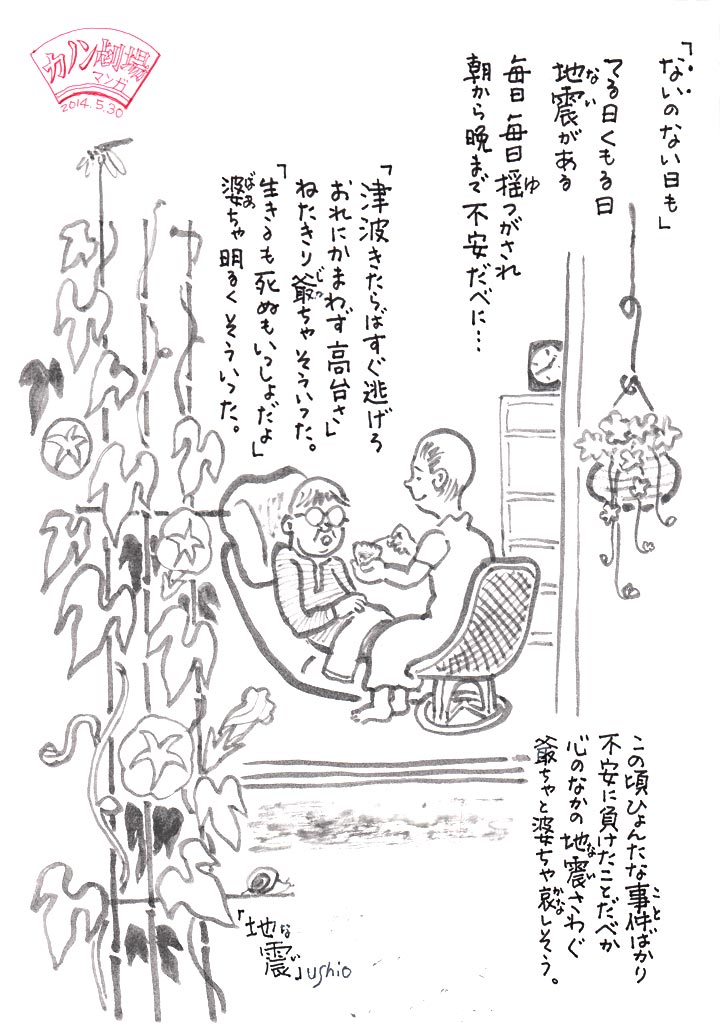 カノン劇場
マンガ
2014.5.30
「ないのない日も」
てる日くもる日
地震がある
ない
毎日毎日揺つがされ
ゆ
朝から晩まで不安だべに…
「津波きたらばすぐ逃げろ
おれにかまわず高台さ」
ねたきり爺ちゃそういった。
じっ
「生きるも死ぬもいっしょだよ」
婆ちゃ明るくそういった。
ばあ
この頃ひょんたな事件ばかり
こと
不安に負けたことだべか
心のなかの地震さわぐ
ない
爺ちゃと婆ちゃ哀しそう。
かな
「地震」ushio
ない